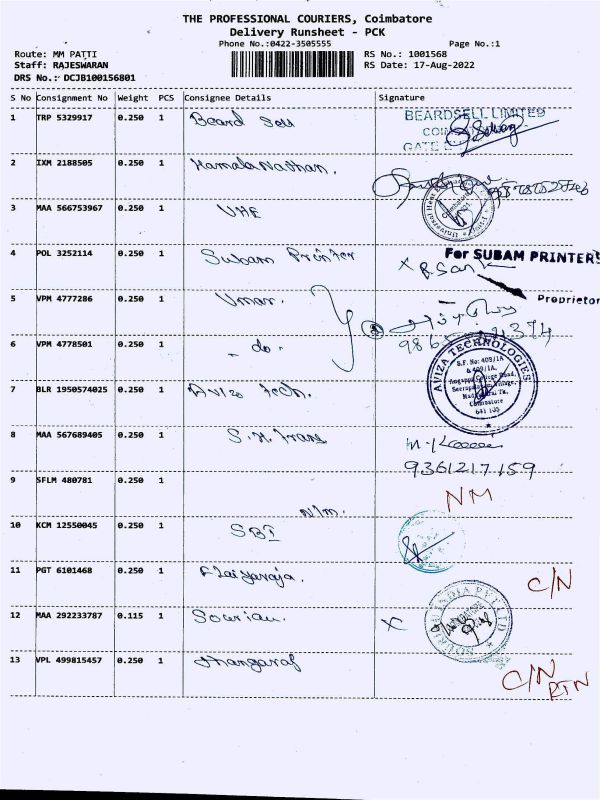 THE PROFESSIONAL COURIERS, Coimbatore
Delivery Runsheet - PCK
Phone No.:0422-3505555
Page No.:1
Route: MM PATTI
RS No.: 1001568
Staff: RAJESWARAN
RS Date: 17-Aug-2022
DRS No.: DCJB100156801
S No Consignment No Weight PCS Consignee Details Signature
1 TRP 5329917 0.250 1 Beard Sell
BEARDSELL LIMITED
GATE
2 IXM 2188505 0.250 1 Kamala Nathan.
3 MAA 566753967 0.250 1 UHE
4 POL 3252114 0.250 1 Subam Printer
For SUBAM PRINTERS
Proprietor
5 VPM 4777286 0.250 1 Umar.
6 VPM 4778501 0.250 1 - do -
7 BLR 1950574025 0.250 1 Aviza Tech.
AVIZA TECHNOLOGIES
S.F. No: 408/1A
& 409/1A,
Coimbatore
8 MAA 567689405 0.250 1 S.N. Trans
9361217159
9 SFLM 480781 0.250 1
N/m.
NM
10 KCM 12550045 0.250 1 SBI
11 PGT 6101468 0.250 1 Elaiyaraja.
C/N
12 MAA 292233787 0.115 1 Souriau.
X
13 VPL 499815457 0.250 1 Thangaraj
C/N
RTN